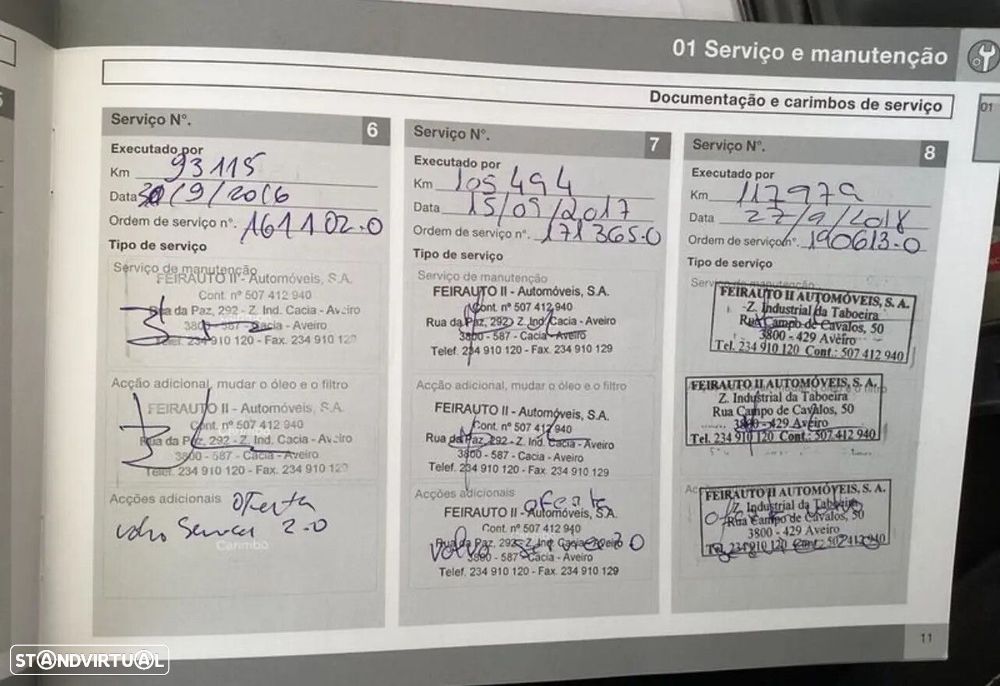 01 Serviço e manutenção
01
Documentação e carimbos de serviço
Serviço Nº.
6
Executado por
Km 93115
Data 30/9/2016
Ordem de serviço nº. 161102.0
Tipo de serviço
Serviço de manutenção
FEIRAUTO II - Automóveis, S.A.
Cont. nº 507 412 940
Rua da Paz, 292 - Z. Ind. Cacia - Aveiro
3800 - 587 - Cacia - Aveiro
Telef. 234 910 120 - Fax. 234 910 129
Acção adicional, mudar o óleo e o filtro
FEIRAUTO II - Automóveis, S.A.
Cont. nº 507 412 940
Rua da Paz, 292 - Z. Ind. Cacia - Aveiro
3800 - 587 - Cacia - Aveiro
Telef. 234 910 120 - Fax. 234 910 129
Acções adicionais
oferta
volvo Service 2.0
Carimbo
Serviço Nº.
7
Executado por
Km 105494
Data 15/09/2017
Ordem de serviço nº. 171365.0
Tipo de serviço
Serviço de manutenção
FEIRAUTO II - Automóveis, S.A.
Cont. nº 507 412 940
Rua da Paz, 292 - Z. Ind. Cacia - Aveiro
3800 - 587 - Cacia - Aveiro
Telef. 234 910 120 - Fax. 234 910 129
Acção adicional, mudar o óleo e o filtro
FEIRAUTO II - Automóveis, S.A.
Cont. nº 507 412 940
Rua da Paz, 292 - Z. Ind. Cacia - Aveiro
3800 - 587 - Cacia - Aveiro
Telef. 234 910 120 - Fax. 234 910 129
Acções adicionais
oferta
FEIRAUTO II - Automóveis, S.A.
Cont. nº 507 412 940
Rua da Paz, 292 - Z. Ind. Cacia - Aveiro
volvo
3800 - 587 - Cacia - Aveiro
Telef. 234 910 120 - Fax. 234 910 129
Serviço Nº.
8
Executado por
Km 117979
Data 27/9/2018
Ordem de serviço nº. 190613.0
Tipo de serviço
FEIRAUTO II AUTOMÓVEIS, S. A.
Z. Industrial da Taboeira
Rua Campo de Cavalos, 50
3800 - 429 Aveiro
Tel. 234 910 120 Cont.: 507 412 940
FEIRAUTO II AUTOMÓVEIS, S. A.
Z. Industrial da Taboeira
Rua Campo de Cavalos, 50
3800 - 429 Aveiro
Tel. 234 910 120 Cont.: 507 412 940
FEIRAUTO II AUTOMÓVEIS, S. A.
Z. Industrial da Taboeira
Rua Campo de Cavalos, 50
3800 - 429 Aveiro
Tel. 234 910 120 Cont.: 507 412 940
11
STANDVIRTUAL